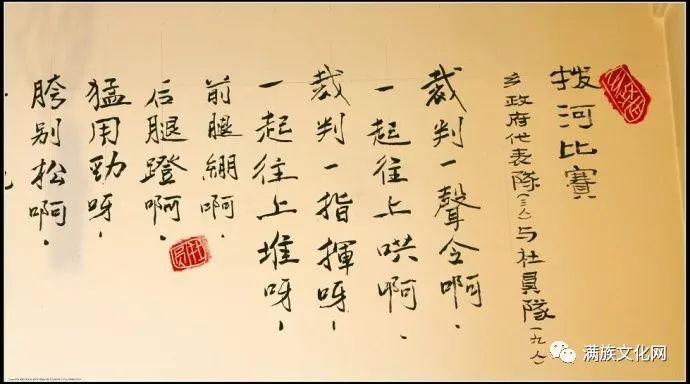 拨河比賽
乡政府代表隊(三人)与社員隊(一九人)
裁判一聲令啊、
一起往上哄啊、
裁判一指揮呀、
一起往上堆呀、
前腿綳啊、
后腿蹬啊、
猛用勁呀、
胯别松啊、
满族文化网